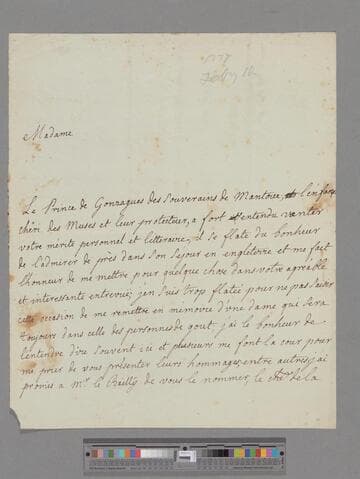 Madame
Le Prince de Gonzagues des Souverains de Mantoue, l'enfant
chéri des Muses et leur protecteur, a fort entendu vanter
votre mérite personnel et litteraire, il se flate du bonheur
de l'admirer de près dans son Sejour en engleterre et me fait
l'honneur de me mettre pour quelque chose dans votre agréable
et interessante entrevüe; j'en suis trop flatée pour ne pas saisir
cette occasion de me remettre en memoire d'une dame qui sera
toujours dans celle des personnes de gout. j'ai le bonheur de
l'entendre dire souvent ici et plusieurs me font la cour pour
me prier de vous présenter leurs hommages, entre autres j'ai
promis a Mr. le Bailly de vous le nommer, le de la